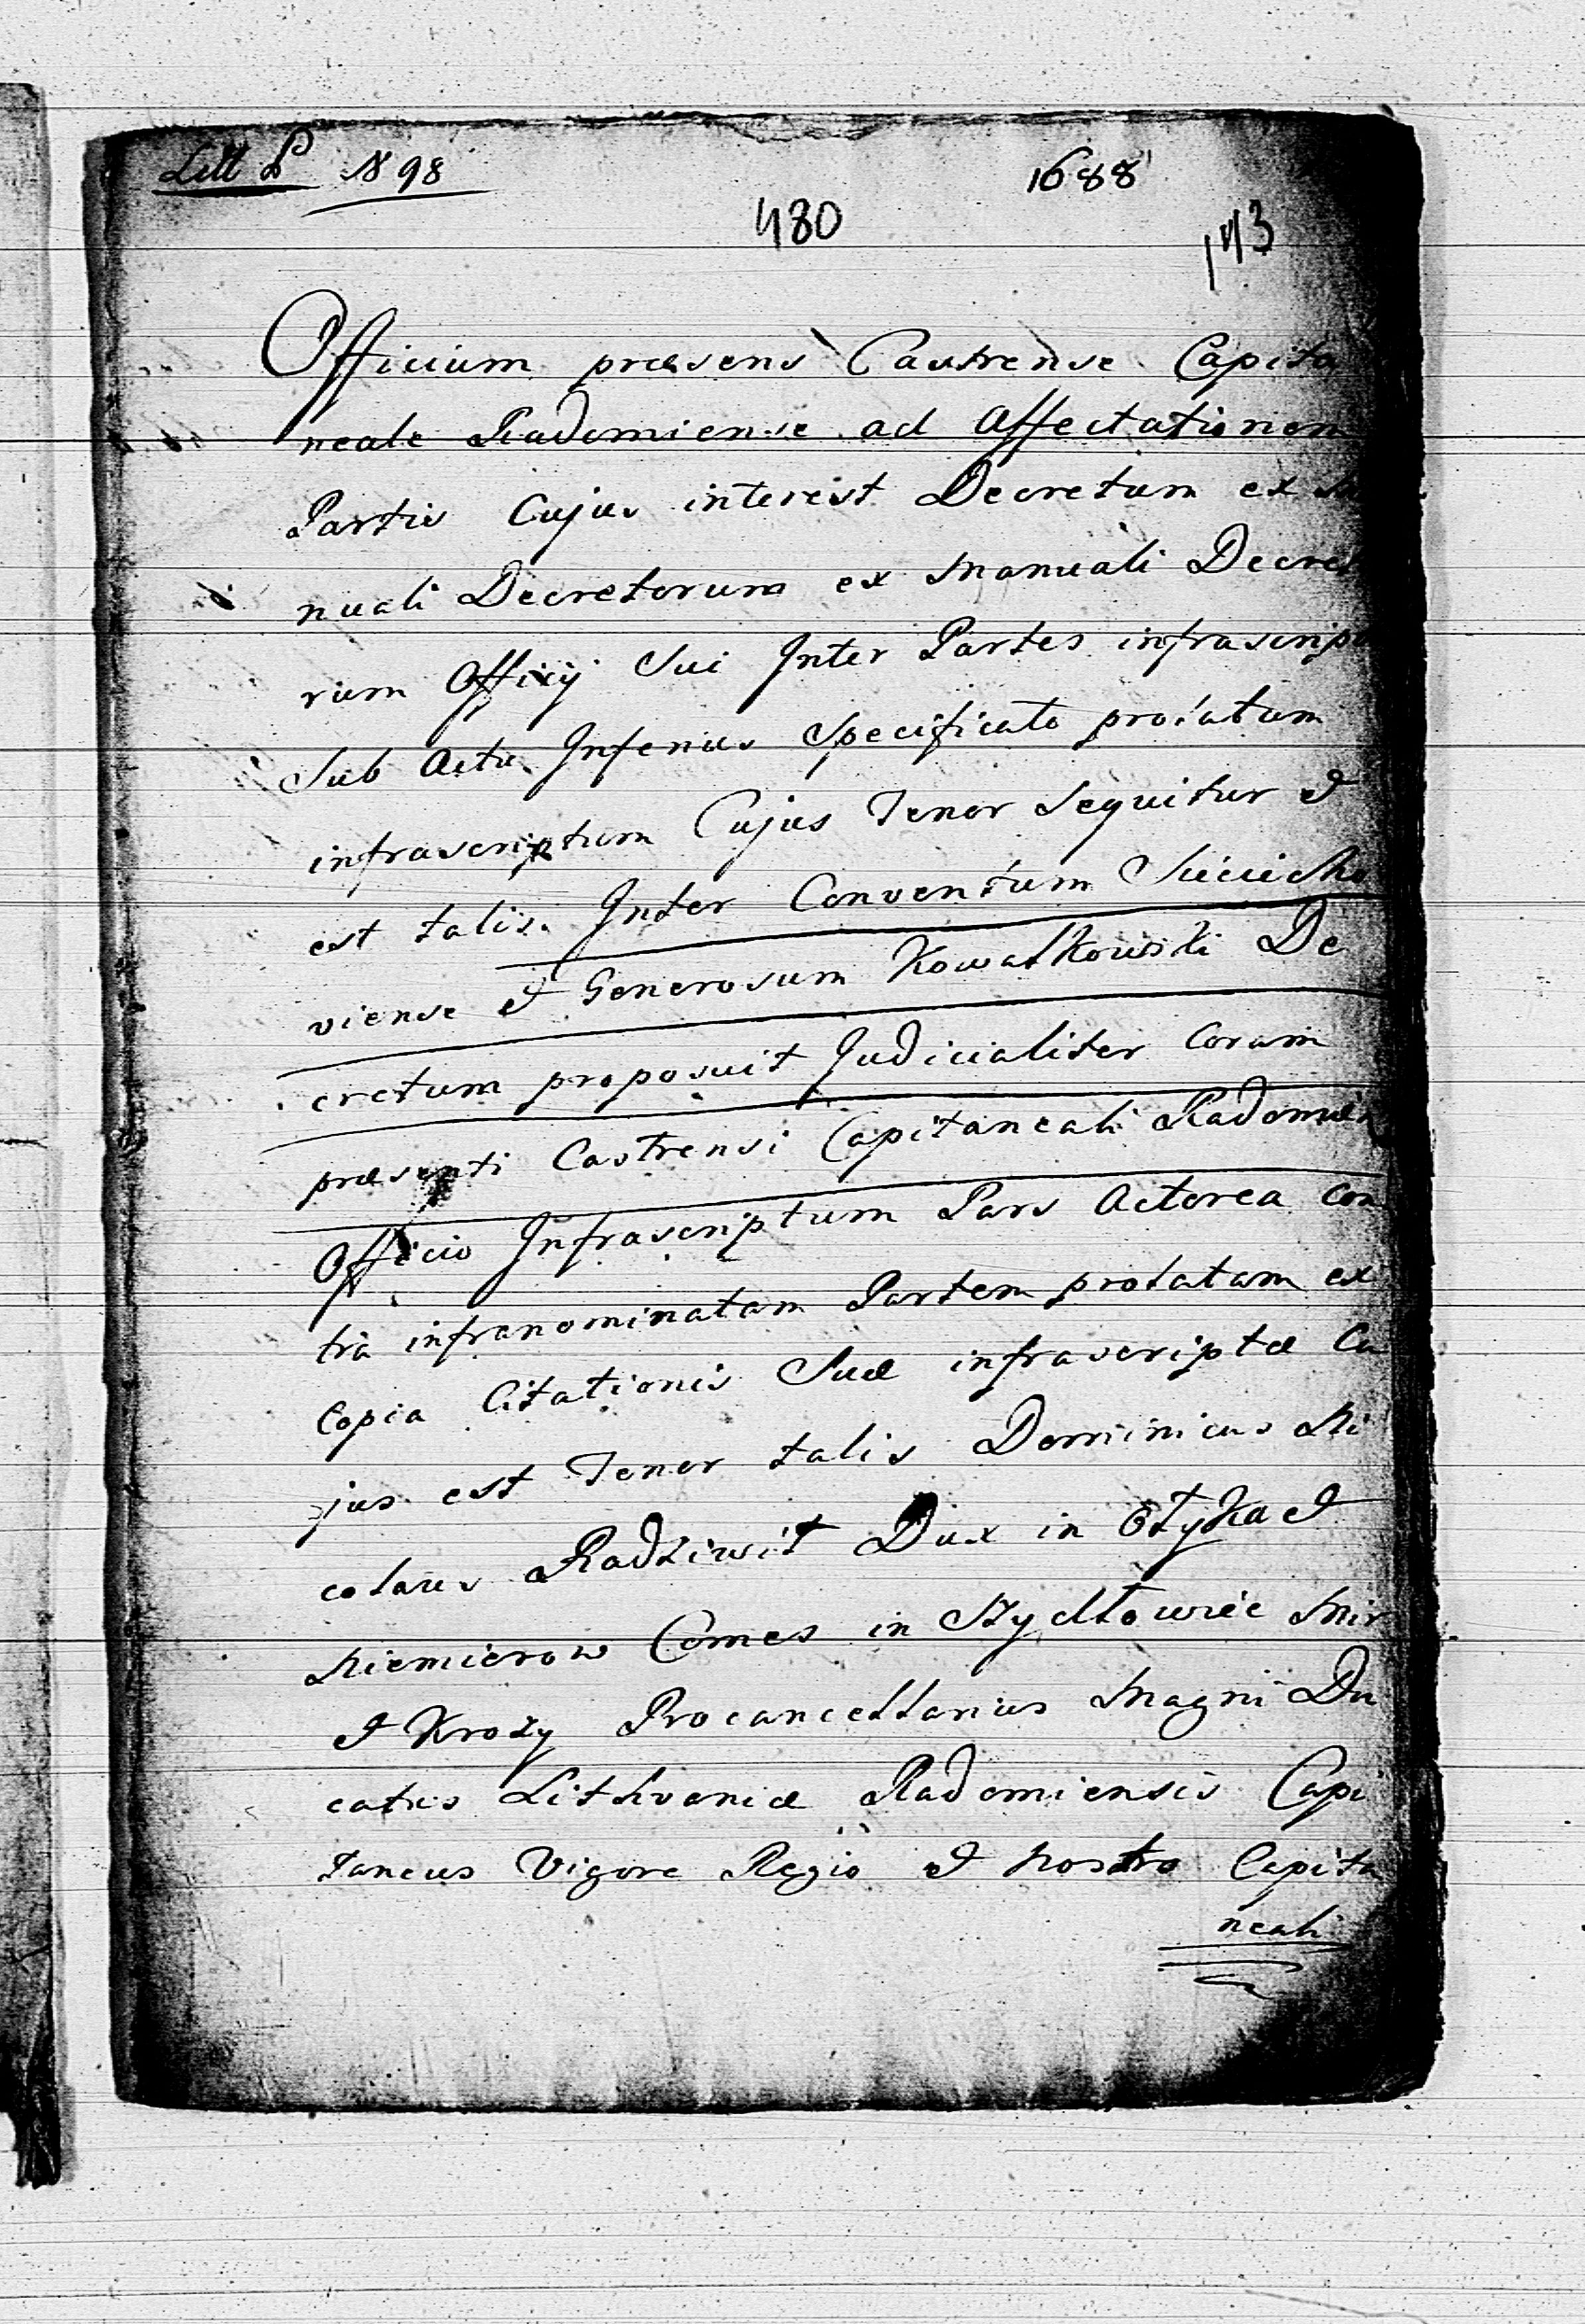 Litt P N 98
1688
480
143
Officium præsens Castrense Capita
neale Radomiense ad Affectationem
Partis Cujus interest Decretum ex Ma
nuali Decretorum ex Manuali Decreto
rum Officij Sui Inter Partes infrascrip
Sub Actu Inferius Specificato prolatum
infrascriptum Cujus Tenor Sequitur et
est talis. Inter Conventum Sieciecho
viense et Generosum Kowalkowski De
cretum proposuit Judicialiter Coram
præsenti Castrensi Capitaneali Radomien
Officio Infrascriptum Pars Actorea Con
tra infranominatam Partem prolatam ex
Copia Citationis Suæ infrascriptæ Cu
jus est Tenor talis Dominicus Ni
colaus Radziwił Dux in Ołyka et
Niemierow Comes in Szydłowiec Mir
et Krozy Procancellarius Magni Du
catus Lithvaniæ Radomiensis Capi
taneus Vigore Regio et Nostro Capita
neali